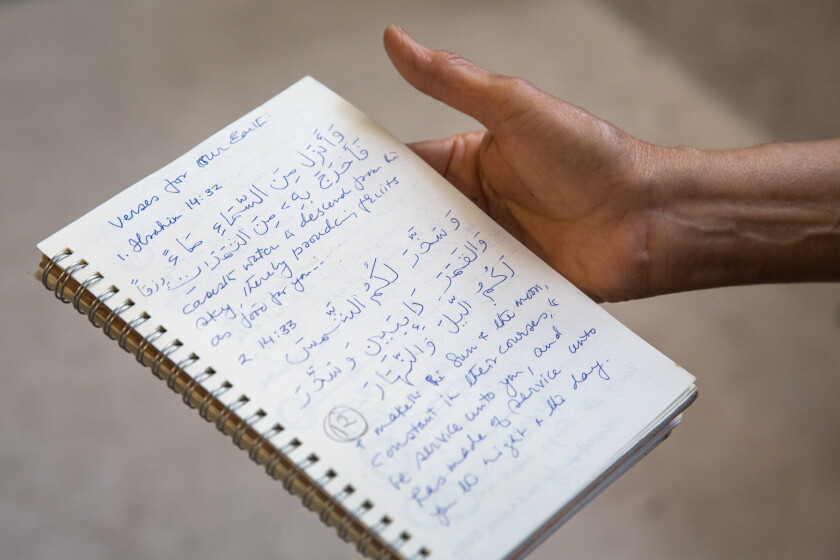 Verses for our Earth:
1. Ibrahim 14:32
وَأَنْزَلَ مِنَ السَّمَاءِ مَاءً
فَأَخْرَجَ بِهِ مِنَ الثَّمَرَاتِ رِزْقاً
Causeth water to descend from the
sky, thereby producing fruits
as food for you....
2. 14:33
وَسَخَّرَ لَكُمُ الشَّمْسَ
وَالْقَمَرَ دَائِبَيْنِ وَسَخَّرَ
لَكُمُ اللَّيْلَ وَالنَّهَارَ
12
& maketh the sun & the moon,
constant in their courses, to
be service unto you, and
has made of service unto
you the night & the day.